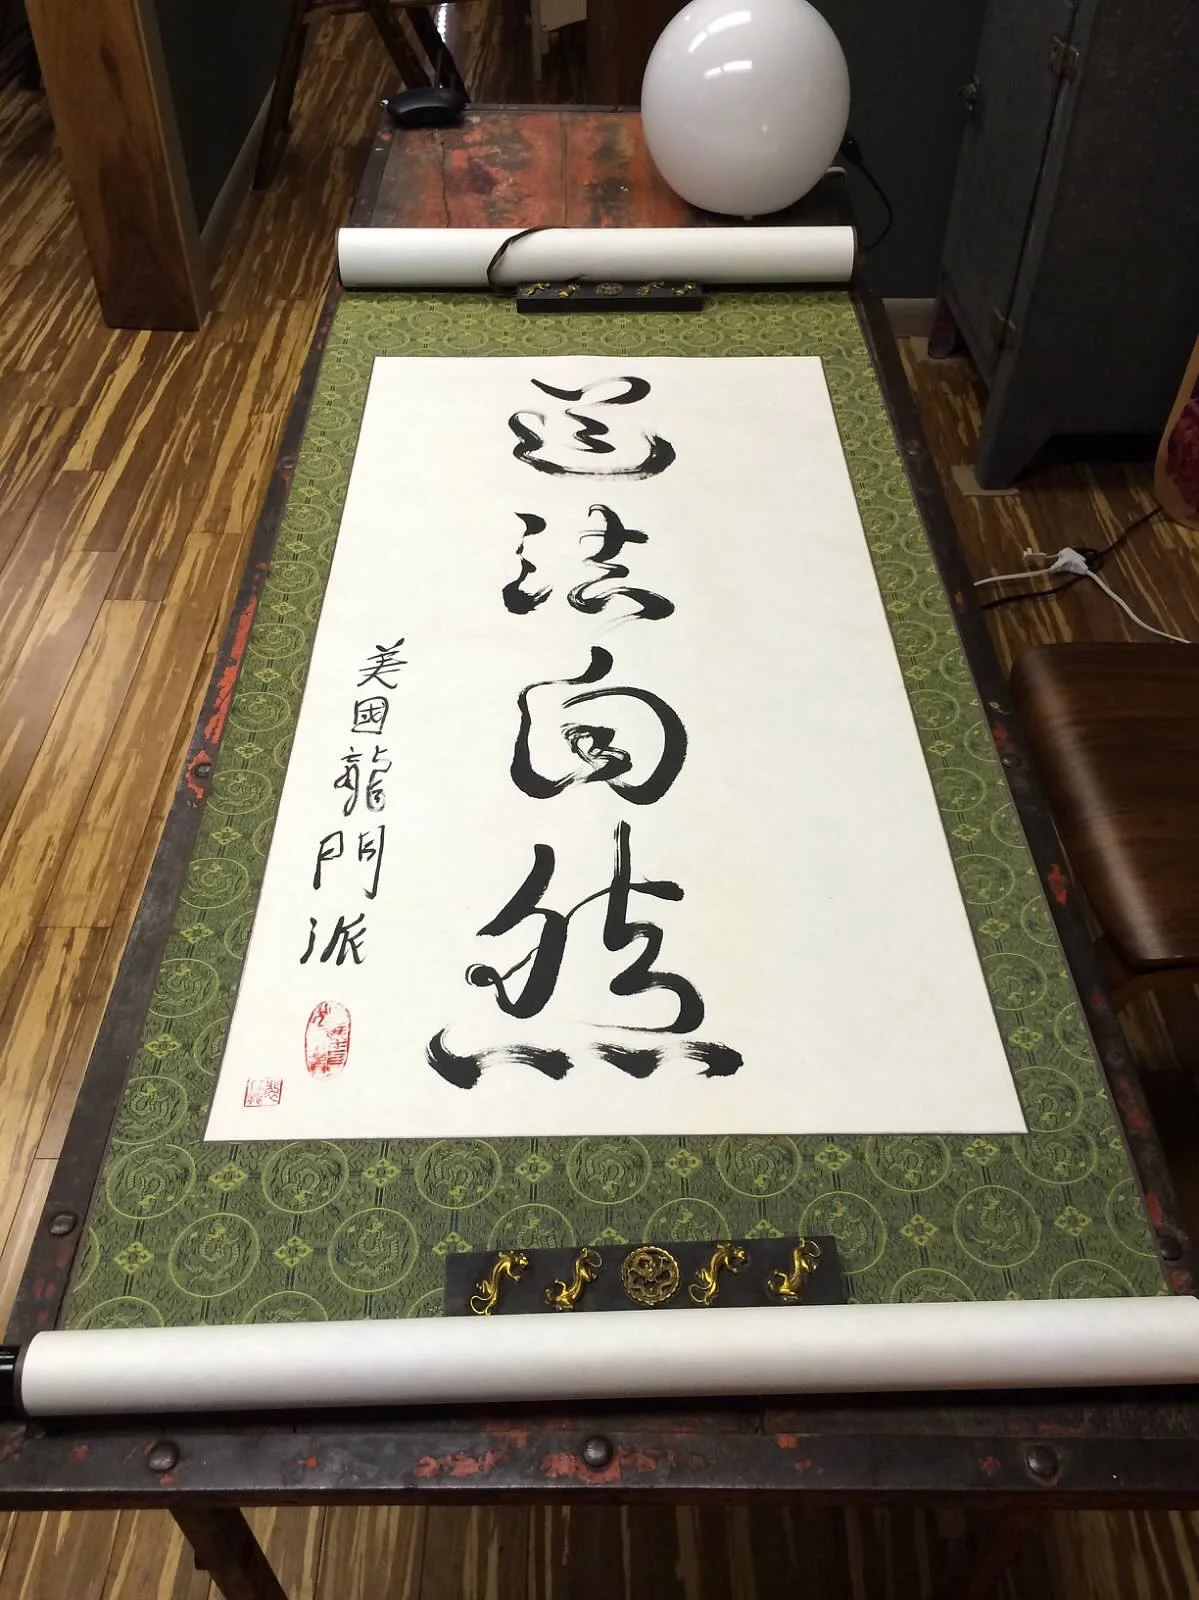 道法自然
美國龍門派